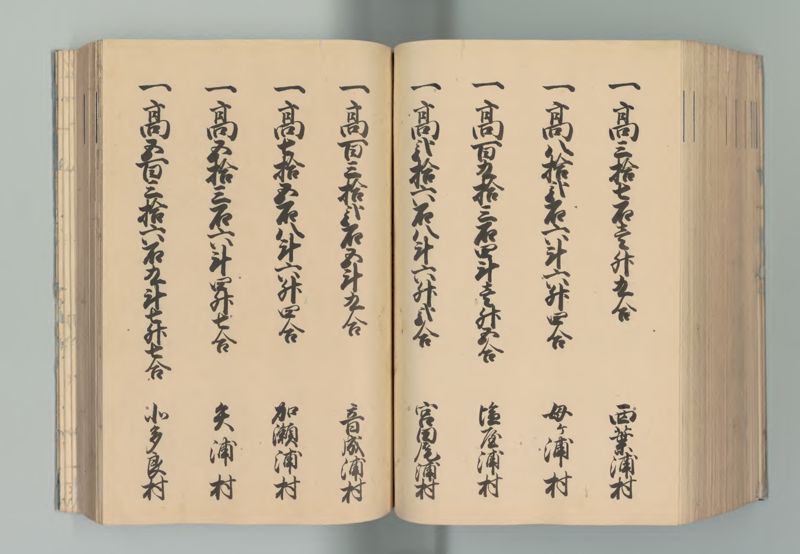 一高三拾七石壱升九合　西葉浦村
一高八拾弐石六斗六升四合　母ヶ浦村
一高百九拾三石四斗壱升五合　塩屋浦村
一高弐拾六石八斗六升弐合　宮田尾浦村
一高百三拾弐石五斗九合　音成浦村
一高七拾五石八斗六升四合　加瀬浦村
一高五拾三石六斗四升七合　矢浦村
一高五百三拾六石九斗七升七合　小多良村